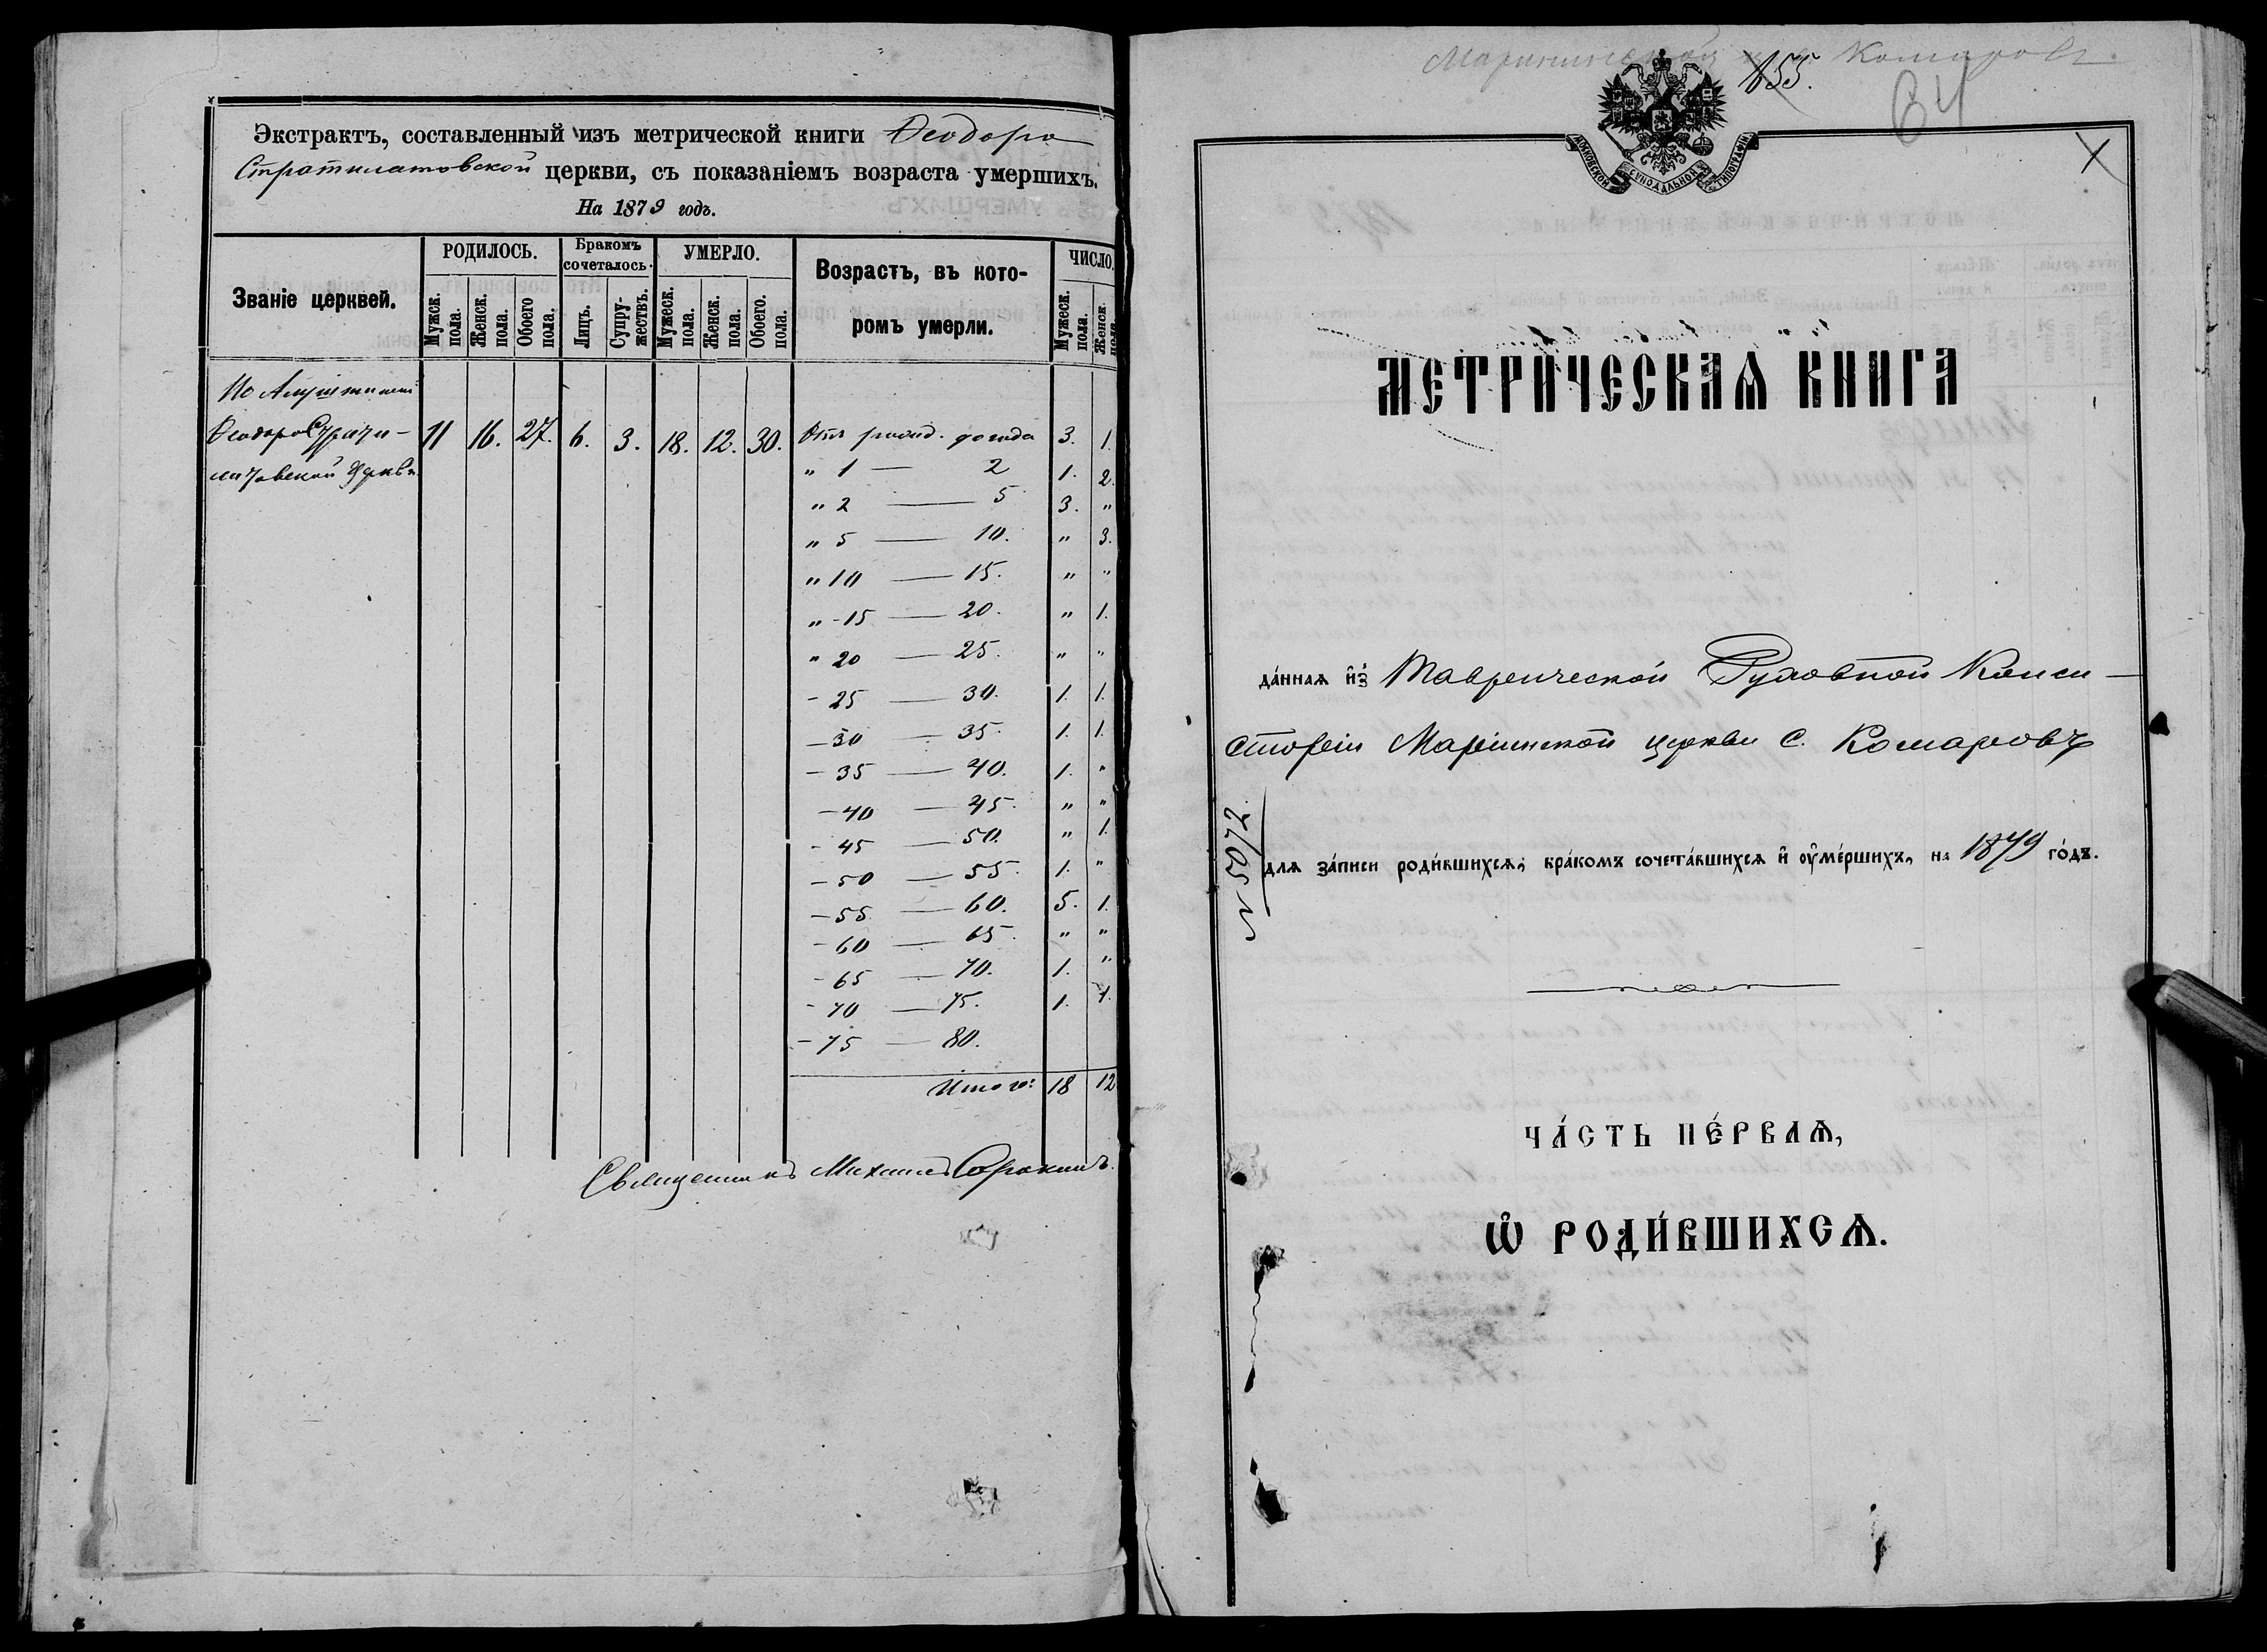 Экстрактъ, составленный изъ метрической книги Ѳеодоро
Стратилатовской церкви, съ показаніемъ возраста умершихъ.
На 1879 годъ.
Званіе церквей.
РОДИЛОСЬ.
Мужск. пола.
Женск. пола.
Обоего пола.
Бракомъ сочеталось.
Лицъ.
Супружествъ.
УМЕРЛО.
Мужеск. пола.
Женск. пола.
Обоего. пола.
Возрастъ, въ кото-
ромъ умерли.
ЧИСЛО.
Мужеск. пола.
Женск. пола.
По Алуштинской
ѲеодороСтрати-
латовской Церкви
11 16. 27. 6. 3. 18. 12. 30.
Отъ рожд. до года 3. 1.
" 1 — 2 1. 2.
" 2 — 5 3. "
" 5 — 10. " 3.
" 10 — 15. " "
" -15 — 20. " 1.
" 20 — 25. " "
- 25 — 30. 1. 1.
- 30 — 35. 1. 1.
- 35 — 40. 1. "
- 40 — 45. " "
- 45 — 50. " 1.
- 50 — 55. 1. "
- 55 — 60. 5. 1.
- 60 — 65. " "
- 65 — 70. 1. "
- 70 — 75. 1. 1.
- 75 — 80.
Итого: 18 12
Священникъ Михаилъ Сорокинъ.
Комаровъ.
155.
64
МОСКОВСКОЙ СѴНОДАЛЬНОЙ ТИПОГРАФІИ
МЕТРИ́ЧЕСКАѦ КНИГА
да́ннаѧ и҆з̾ Таврической Духовной Конси-
сторіи Маріинской церкви с. Комаровъ
№ 5072.
для за́писи роди́вшихсѧ, бра́комъ сочета́вшихсѧ и҆ ᲂу҆ме́ршихъ, на 1879 го́дъ.
ЧА́СТЬ ПЕ́РВАѦ,
Ѽ РОДИ́ВШИХСѦ.